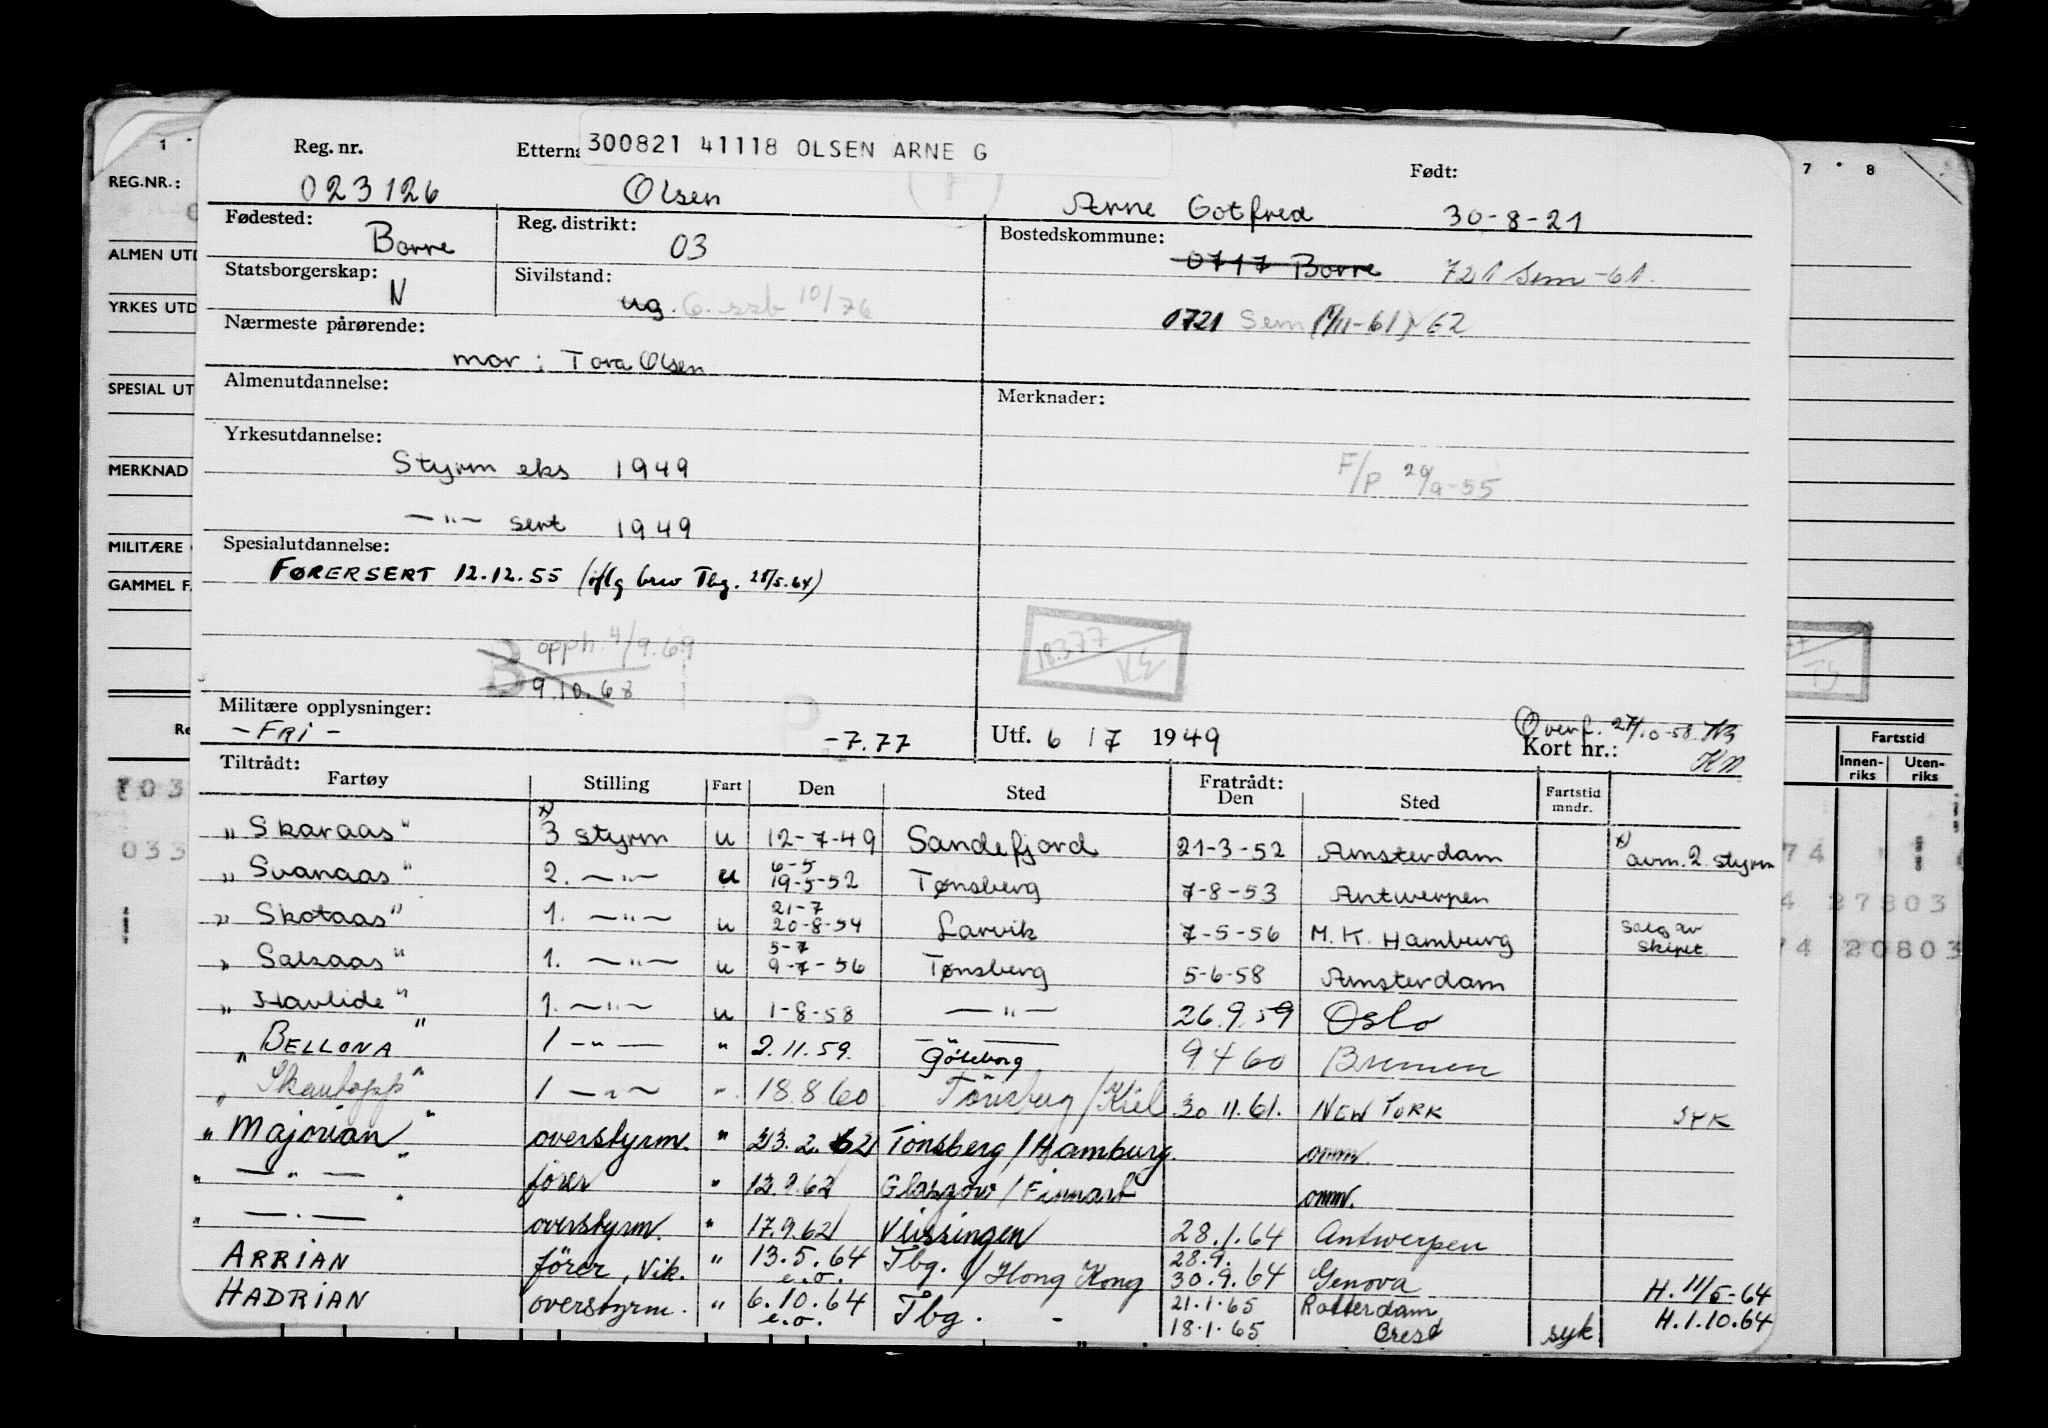 Reg. nr. Ettern 300821 41118 OLSEN ARNE G Født:
023126 Olsen Arne Gotfred 30-8-21
Fødested: Borre Reg. distrikt: 03 Bostedskommune:
0717 Borre 721 Sem -61.
Statsborgerskap: N Sivilstand: ug. G. ssb 10/76
0721 Sem
Nærmeste pårørende:
mor: Tora Olsen
Almenutdannelse: Merknader:
Yrkesutdannelse:
Styrm eks 1949 F/P 29/9-55
—"— sert 1949
Spesialutdannelse:
FØRERSERT 12.12.55 (iflg brev Tbg. 25/5.64)
B opph. 4/9.69 18.3.77
9.10.68
Militære opplysninger: Overf. 27/10-58
-FRI- P. -7.77 Utf. 6 / 7 1949 Kort nr.:
Tiltrådt: Fratrådt:
Fartøy Stilling Fart Den Sted Den Sted Fartstid mndr.
„Skaraas" x) 3 styrm u 12-7-49 Sandefjord 21-3-52 Amsterdam x) avm. 2. styrm
„Svanaas" 2. —"— u 6-5 19-5-52 Tønsberg 7-8-53 Antwerpen
„Skotaas" 1. —"— u 21-7 20-8-54 Larvik 7-5-56 M. K. Hamburg Salg av skipet
„Salsaas" 1. —"— u 5-7 9-7-56 Tønsberg 5-6-58 Amsterdam
„Havlide" 1. —"— u 1-8-58 —"— 26.9.59 Oslo
„BELLONA" 1 —"— " 2.11.59. Göteborg 9 4 60 Bremen
„Skautopp" 1 —"— " 18.8 60 Tönsberg/Kiel 30 11.61. NEW YORK SYK
„Majorian" overstyrm. " 23.2.62 Tönsberg/Hamburg. omm.
" —"— " förer " 12.9.62 Glasgow/Finnart omm.
" —"— " overstyrm. " 17.9.62 Vlissingen 28.1.64 Antwerpen
ARRIAN förer, vik. " 13.5.64 e.o. Tbg. / Hong Kong 28.9. 30.9.64 Genova H. 11/5-64
HADRIAN overstyrm. " 6.10.64 e.o. Tbg. - 21.1.65 Rotterdam H.1.10.64
18.1.65 Brest syk
1
REG.NR.:
ALMEN UTD
YRKES UTD
SPESIAL UT
MERKNAD
MILITÆRE
GAMMEL F
Re
103
033
7 8
Fartstid
Innen-riks Uten-riks
74
4 27803
74 20803